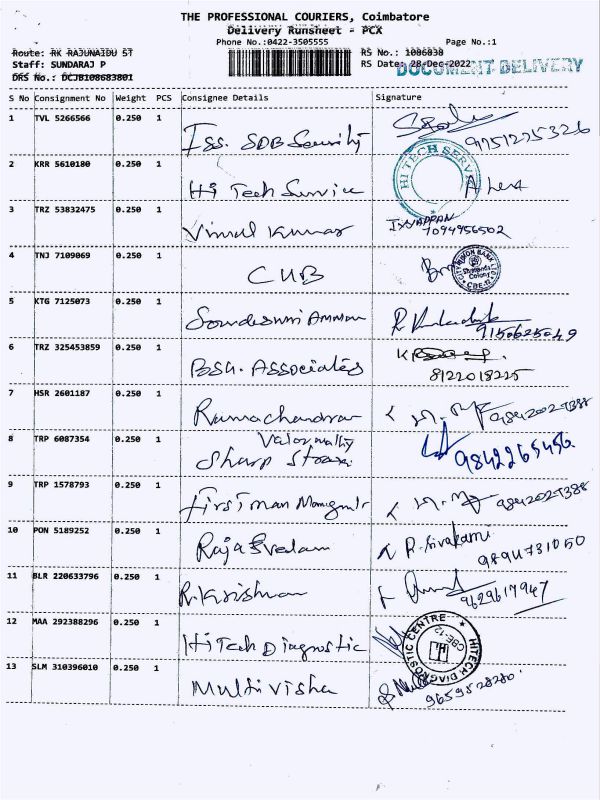 THE PROFESSIONAL COURIERS, Coimbatore
Delivery Runsheet - PCX
Phone No.:0422-3505555 Page No.:1
Route: RK RAJUNAIDU ST RS No.: 1086838
Staff: SUNDARAJ P RS Date: 28-Dec-2022
DOCUMENT DELIVERY
DRS No.: DCJB108683801
S No Consignment No Weight PCS Consignee Details Signature
1 TVL 5266566 0.250 1 Iss. SDB Security 9751225326
2 KRR 5610180 0.250 1 Hi Tech Service HI TECH SERVICE
3 TRZ 53832475 0.250 1 Vimal Kumar IYYAPPAN
7094956502
4 TNJ 7109069 0.250 1 CUB CITY UNION BANK LTD. Colony CBE-12
5 KTG 7125073 0.250 1 Soundeswri Amman 9150625049
6 TRZ 325453859 0.250 1 BSH. Associates
8122018225
7 HSR 2601187 0.250 1 Ramachandran
8 TRP 6087354 0.250 1 Sharp 9842265456
9 TRP 1578793 0.250 1 First man
10 PON 5189252 0.250 1 Raja R. Sivakami
9894731050
11 BLR 220633796 0.250 1 R. Krishnan 9629617947
12 MAA 292388296 0.250 1 HiTech Diagnostic HITECH DIAGNOSTIC CENTRE CBE-12 H
13 SLM 310396010 0.250 1 Multi visha
9659828280